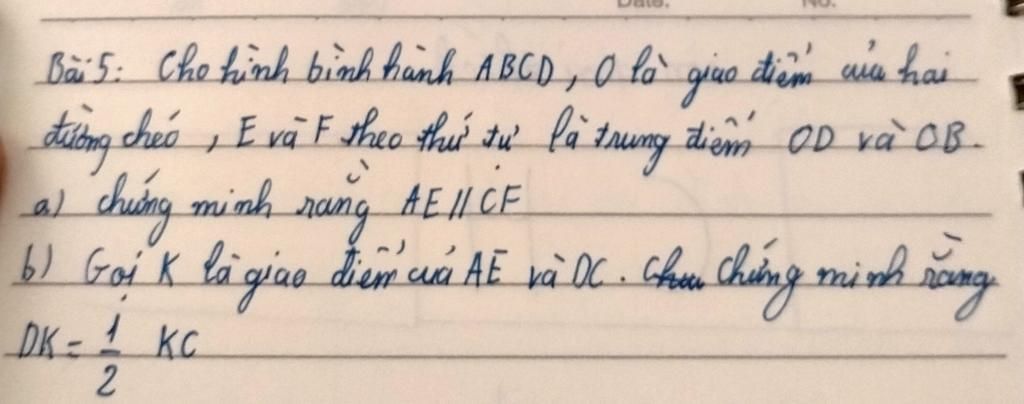 Date. No.
Bài 5: Cho hình bình hành ABCD, O là giao điểm của hai
đường chéo, E và F theo thứ tự là trung điểm OD và OB.
a) chứng minh rằng AE // CF
b) Gọi K là giao điểm của AE và DC. Chứng minh rằng
DK = 1/2 KC